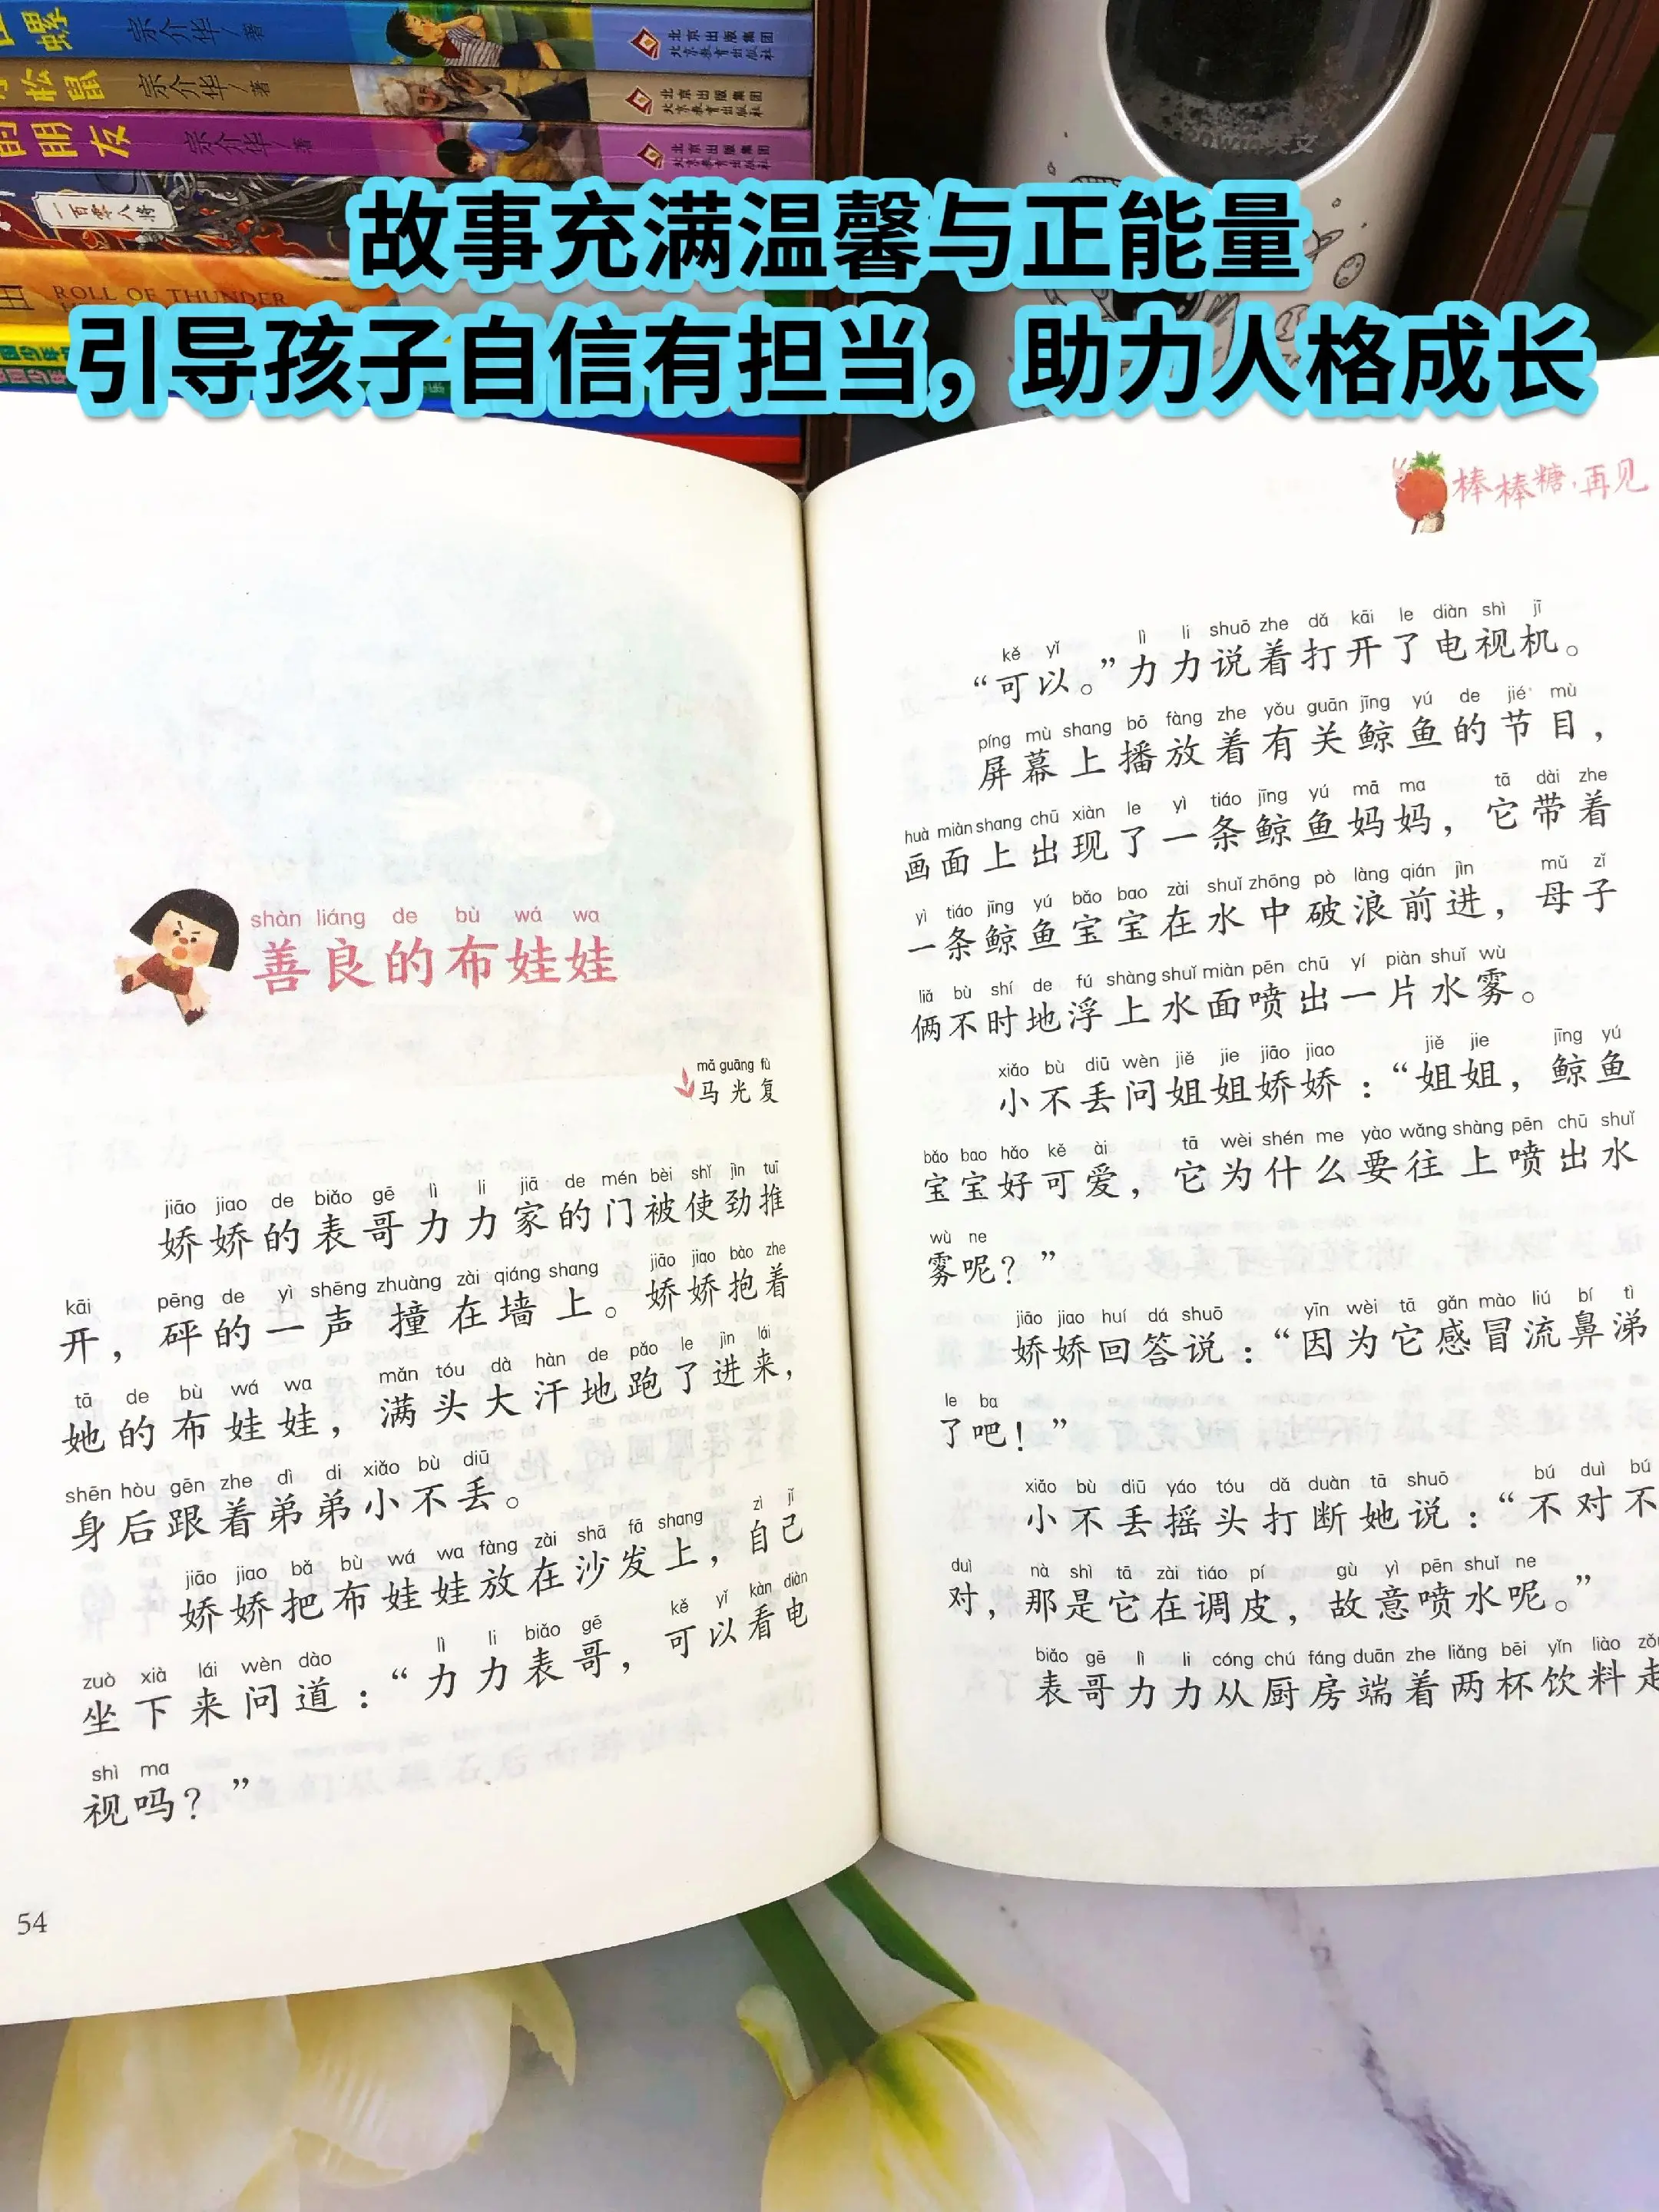 宗介华/著
北京出版集团
北京教育出版社
松鼠
宗介华/著
北京出版集团
北京教育出版社
的朋友
宗介华/著
北京出版集团
北京教育出版社
一百零八将
ROLL OF THUNDER
故事充满温馨与正能量
引导孩子自信有担当，助力人格成长
shàn liáng de bù wá wa
善良的布娃娃
mǎ guāng fù
马光复
jiāo jiao de biǎo gē lì li jiā de mén bèi shǐ jìn tuī
娇娇的表哥力力家的门被使劲推
kāi pēng de yì shēng zhuàng zài qiáng shang jiāo jiao bào zhe
开，砰的一声撞在墙上。娇娇抱着
tā de bù wá wa mǎn tóu dà hàn de pǎo le jìn lái
她的布娃娃，满头大汗地跑了进来，
shēn hòu gēn zhe dì di xiǎo bù diū
身后跟着弟弟小不丢。
jiāo jiao bǎ bù wá wa fàng zài shā fā shang zì jǐ
娇娇把布娃娃放在沙发上，自己
zuò xià lái wèn dào lì li biǎo gē kě yǐ kàn diàn
坐下来问道：“力力表哥，可以看电
shì ma
视吗？”
54
棒棒糖，再见
kě yǐ lì li shuō zhe dǎ kāi le diàn shì jī
“可以。”力力说着打开了电视机。
píng mù shang bō fàng zhe yǒu guān jīng yú de jié mù
屏幕上播放着有关鲸鱼的节目，
huà miàn shang chū xiàn le yì tiáo jīng yú mā ma tā dài zhe
画面上出现了一条鲸鱼妈妈，它带着
yì tiáo jīng yú bǎo bao zài shuǐ zhōng pò làng qián jìn mǔ zǐ
一条鲸鱼宝宝在水中破浪前进，母子
liǎ bù shí de fú shàng shuǐ miàn pēn chū yí piàn shuǐ wù
俩不时地浮上水面喷出一片水雾。
xiǎo bù diū wèn jiě jie jiāo jiao jiě jie jīng yú
小不丢问姐姐娇娇：“姐姐，鲸鱼
bǎo bao hǎo kě ài tā wèi shén me yào wǎng shàng pēn chū shuǐ
宝宝好可爱，它为什么要往上喷出水
wù ne
雾呢？”
jiāo jiao huí dá shuō yīn wèi tā gǎn mào liú bí tì
娇娇回答说：“因为它感冒流鼻涕
le ba
了吧！”
xiǎo bù diū yáo tóu dǎ duàn tā shuō bú duì bú
小不丢摇头打断她说：“不对不
duì nà shì tā zài tiáo pí gù yì pēn shuǐ ne
对，那是它在调皮，故意喷水呢。”
biǎo gē lì li cóng chú fáng duān zhe liǎng bēi yǐn liào
表哥力力从厨房端着两杯饮料走